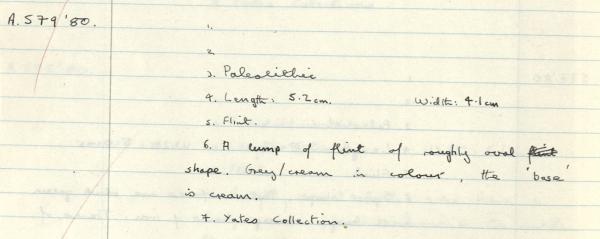 A.579'80.
1.
2.
3. Paleolithic
4. Length: 5.2cm. Width: 4.1cm
5. Flint.
6. A lump of flint of roughly oval
shape. Grey/cream in colour, the 'base'
is cream.
7. Yates Collection.